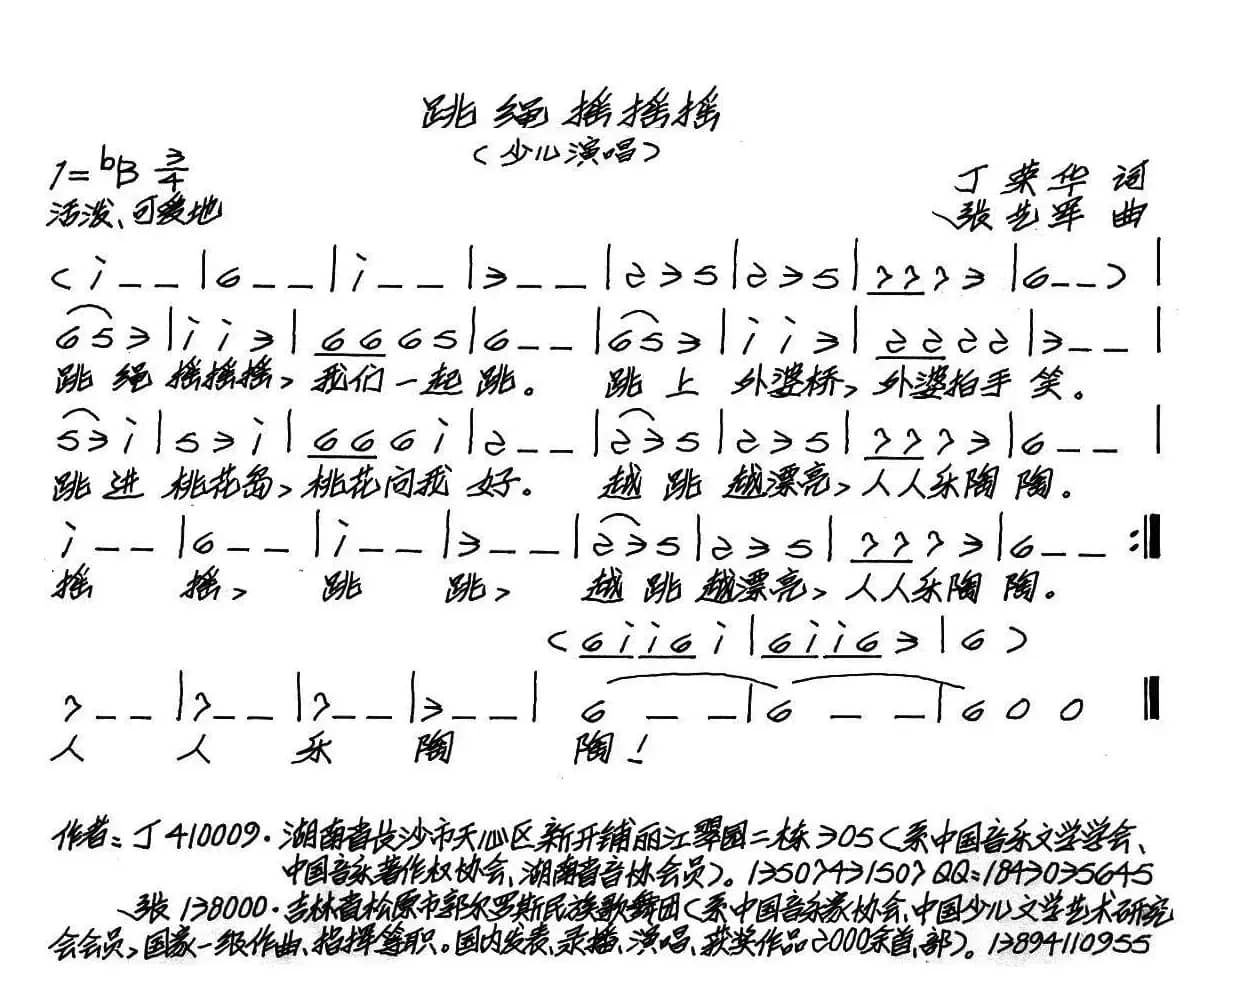 跳绳摇摇摇
(少儿演唱)
1=♭B 3/4
丁荣华 词
活泼、可爱地
张艺军 曲
(i̇ - - | 6 - - | i̇ - - | 3 - - | 2 3 5 | 2 3 5 | 7 7 7 3 | 6 - - ) |
6 5 3 | i̇ i̇ 3 | 6 6 6 5 | 6 - - | 6 5 3 | i̇ i̇ 3 | 2 2 2 2 | 3 - - |
跳 绳 摇摇摇, 我们一起 跳。 跳 上 外婆桥, 外婆拍手 笑。
5 3 i̇ | 5 3 i̇ | 6 6 6 i̇ | 2 - - | 2 3 5 | 2 3 5 | 7 7 7 3 | 6 - - |
跳 进 桃花岛, 桃花问我 好。 越 跳 越漂亮, 人人乐陶 陶。
i̇ - - | 6 - - | i̇ - - | 3 - - | 2 3 5 | 2 3 5 | 7 7 7 3 | 6 - - :‖
摇 摇, 跳 跳, 越 跳 越漂亮, 人人乐陶 陶。
(6 i̇ i̇ 6 i̇ | 6 i̇ i̇ 6 3 | 6 )
7 - - | 7 - - | 7 - - | 3 - - | 6 - - | 6 - - | 6 0 0 ‖
人 人 乐 陶 陶!
作者:丁410009·湖南省长沙市天心区新开铺丽江翠园二栋305(系中国音乐文学学会、
中国音乐著作权协会、湖南省音协会员)。13507431507 QQ:1843035645
张138000·吉林省松原市郭尔罗斯民族歌舞团(系中国音乐家协会、中国少儿文学艺术研究
会会员,国家一级作曲、指挥等职。国内发表、录播、演唱、获奖作品2000余首、部)。13894110955